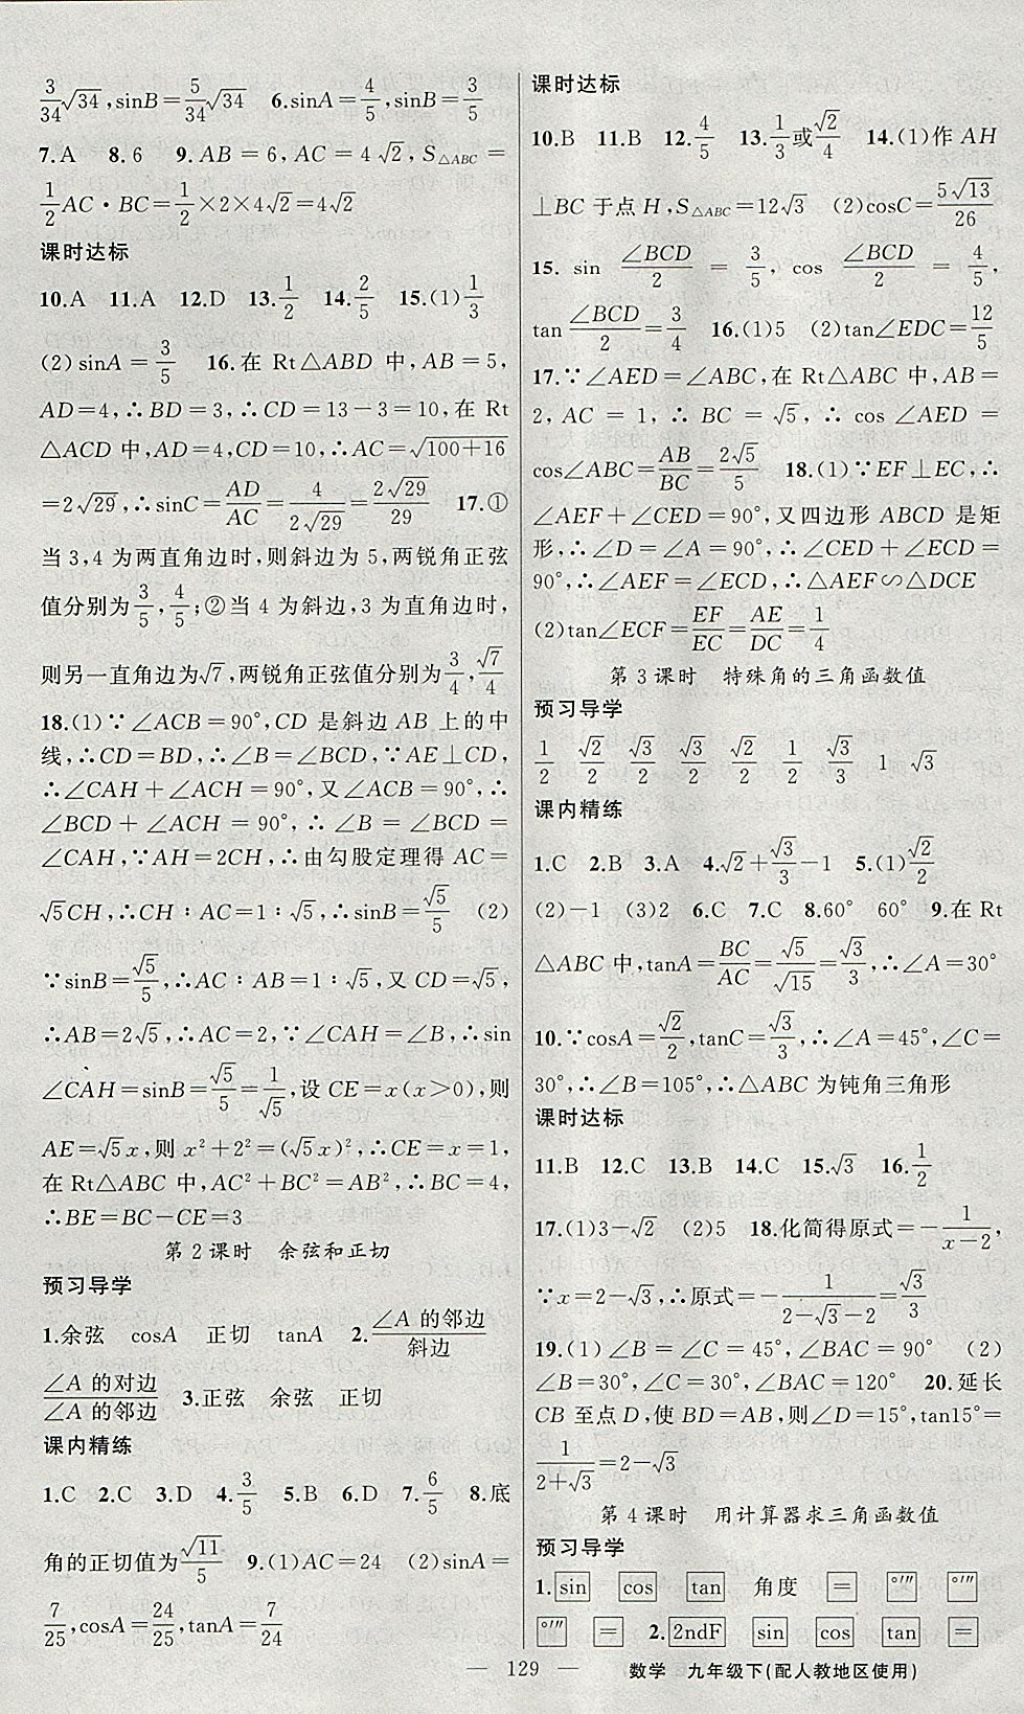 3/34√34, sinB=5/34√34　6.sinA=4/5, sinB=3/5
7.A　8.6　9.AB=6, AC=4√2, S△ABC=
1/2AC·BC=1/2×2×4√2=4√2
课时达标
10.A　11.A　12.D　13.1/2　14.2/5　15.(1)1/3
(2)sinA=3/5　16.在 Rt△ABD 中,AB=5,
AD=4,∴BD=3,∴CD=13-3=10,在 Rt
△ACD 中,AD=4,CD=10,∴AC=√(100+16)
=2√29,∴sinC=AD/AC=4/(2√29)=2√29/29　17.①
当 3,4 为两直角边时,则斜边为 5,两锐角正弦
值分别为3/5,4/5;②当 4 为斜边,3 为直角边时,
则另一直角边为√7,两锐角正弦值分别为3/4,√7/4
18.(1)∵∠ACB=90°,CD 是斜边 AB 上的中
线,∴CD=BD,∴∠B=∠BCD,∵AE⊥CD,
∴∠CAH+∠ACH=90°,又∠ACB=90°,∴
∠BCD+∠ACH=90°,∴∠B=∠BCD=
∠CAH,∵AH=2CH,∴由勾股定理得 AC=
√5CH,∴CH∶AC=1∶√5,∴sinB=√5/5　(2)
∵sinB=√5/5,∴AC∶AB=1∶√5,又 CD=√5,
∴AB=2√5,∴AC=2,∵∠CAH=∠B,∴sin
∠CAH=sinB=√5/5=1/√5,设 CE=x(x>0),则
AE=√5x,则 x²+2²=(√5x)²,∴CE=x=1,
在 Rt△ABC 中,AC²+BC²=AB²,∴BC=4,
∴BE=BC-CE=3
第 2 课时　余弦和正切
预习导学
1.余弦　cosA　正切　tanA　2.∠A 的邻边/斜边
∠A 的对边/∠A 的邻边　3.正弦　余弦　正切
课内精练
1.C　2.C　3.D　4.3/5　5.B　6.D　7.6/5　8.底
角的正切值为√11/5　9.(1)AC=24　(2)sinA=
7/25,cosA=24/25,tanA=7/24
课时达标
10.B　11.B　12.4/5　13.1/3或√2/4　14.(1)作 AH
⊥BC 于点 H,S△ABC=12√3　(2)cosC=5√13/26
15.sin ∠BCD/2=3/5,cos ∠BCD/2=4/5,
tan∠BCD/2=3/4　16.(1)5　(2)tan∠EDC=12/5
17.∵∠AED=∠ABC,在 Rt△ABC 中,AB=
2,AC=1,∴BC=√5,∴cos∠AED=
cos∠ABC=AB/BC=2√5/5　18.(1)∵EF⊥EC,∴
∠AEF+∠CED=90°,又四边形 ABCD 是矩
形,∴∠D=∠A=90°,∴∠CED+∠ECD=
90°,∴∠AEF=∠ECD,∴△AEF∽△DCE
(2)tan∠ECF=EF/EC=AE/DC=1/4
第 3 课时　特殊角的三角函数值
预习导学
1/2　√2/2　√3/2　√3/2　√2/2　1/2　√3/3　1　√3
课内精练
1.C　2.B　3.A　4.√2+√3/3-1　5.(1)√2/2
(2)-1　(3)2　6.C　7.C　8.60°　60°　9.在 Rt
△ABC 中,tanA=BC/AC=√5/√15=√3/3,∴∠A=30°
10.∵cosA=√2/2,tanC=√3/3,∴∠A=45°,∠C=
30°,∴∠B=105°,∴△ABC 为钝角三角形
课时达标
11.B　12.C　13.B　14.C　15.√3　16.1/2
17.(1)3-√2　(2)5　18.化简得原式=-1/(x-2),
∵x=2-√3,∴原式=-1/(2-√3-2)=√3/3
19.(1)∠B=∠C=45°,∠BAC=90°　(2)
∠B=30°,∠C=30°,∠BAC=120°　20.延长
CB 至点 D,使 BD=AB,则∠D=15°,tan15°=
1/(2+√3)=2-√3
第 4 课时　用计算器求三角函数值
预习导学
1.sin　cos　tan　角度　=　°′″　°′″
°′″　=　2.2ndF　sin　cos　tan　=
— 129 —　数学　九年级下(配人教地区使用)